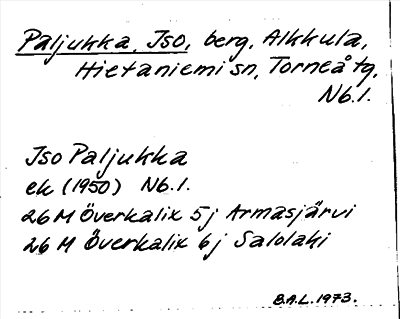 Paljukka, Iso, berg, Alkkula,
Hietaniemi sn, Torneå tg,
Nb.l.
Iso Paljukka
ek (1950) Nb.l.
26 M Överkalix 5j Armasjärvi
26 M Överkalix 6j Salolaki
B.A.L. 1973.